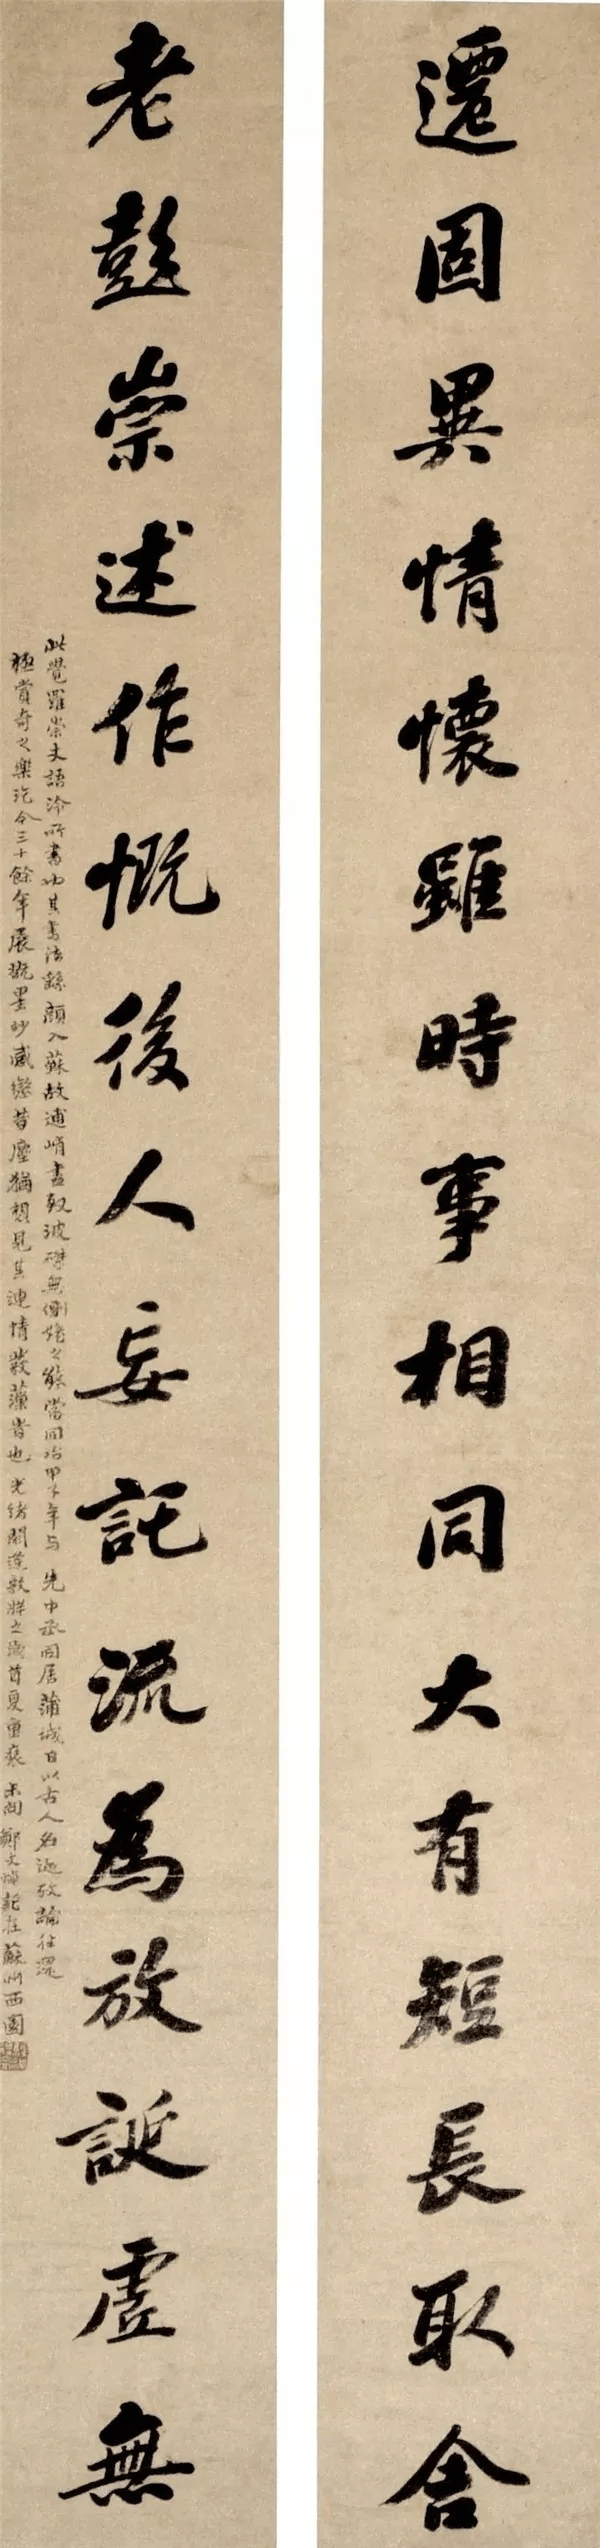 遷固異情懷雖時事相同大有短長取舍
老彭崇述作慨後人妄託流為放誕虛無
此覺羅崇文語泠所書也其書法繇顏入蘇故逋峭盡致波磔無側媚之態當同治甲子年与先中丞同居蒲城日以古人名迹攷論往還
極賞奇之樂迄今三十餘年展玩墨妙感戀昔塵猶想見其連情發藻昔也光緒閼逢敦牂之歲首夏重裝 鄭文焯記在蘇州西園